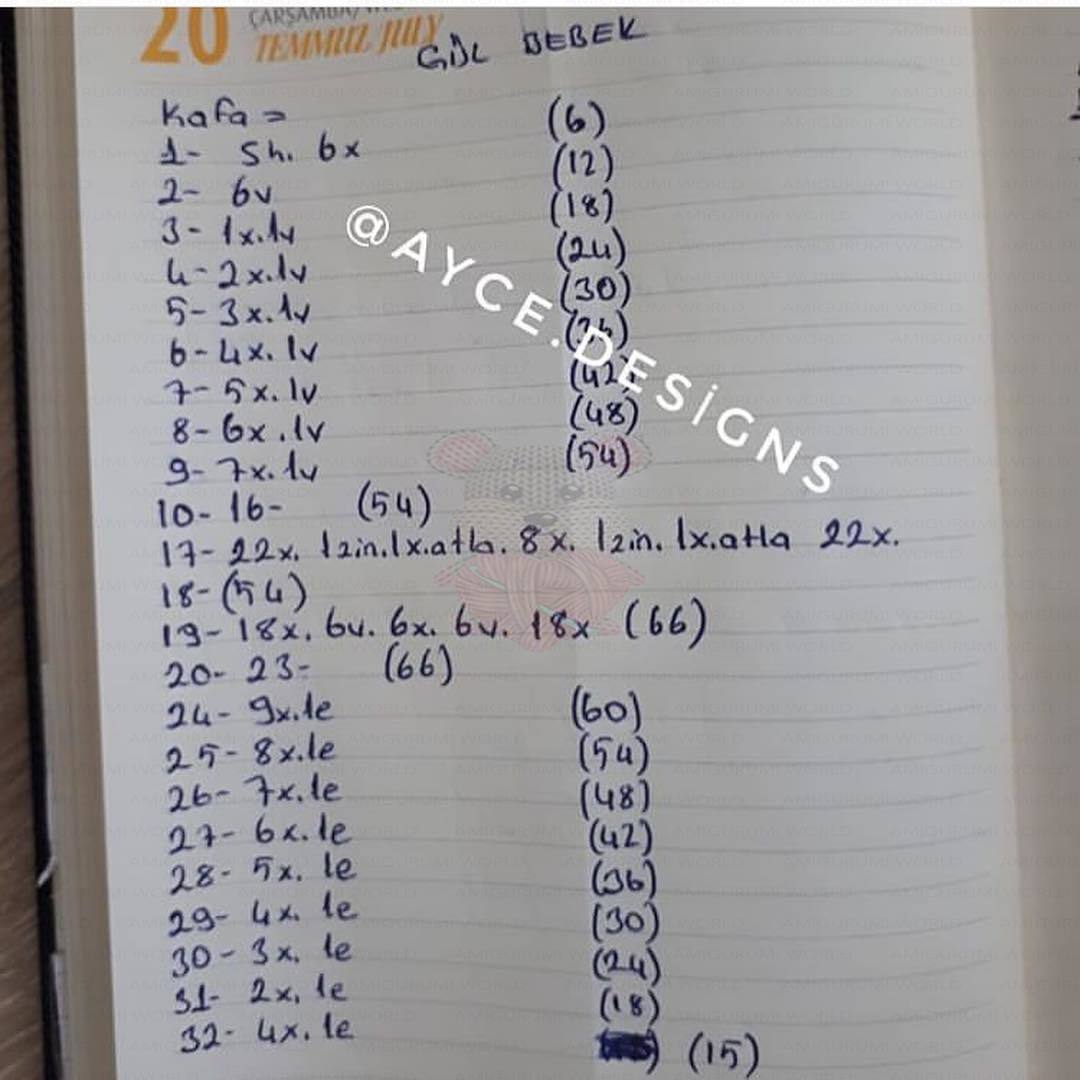 20 ÇARŞAMBA/
TEMMUZ JULY
GÜL BEBEK
Kafa= (6)
1- Sh. 6x (12)
2- 6v (18)
3- 1x.1v (24)
4- 2x.1v (30)
5- 3x.1v (36)
6- 4x. 1v (42)
7- 5x. 1v (48)
8- 6x.1v (54)
9- 7x.1v
10- 16- (54)
17- 22x. 1zin.1x.atla. 8x. 1zin. 1x.atla 22x.
18- (54)
19- 18x. 6v. 6x. 6v. 18x (66)
20- 23- (66)
24- 9x.1e (60)
25- 8x.1e (54)
26- 7x.1e (48)
27- 6x.1e (42)
28- 5x. 1e (36)
29- 4x. 1e (30)
30- 3x. 1e (24)
31- 2x, 1e (18)
32- 4x. 1e (15)
@AYCE.DESİGNS
AMIGURUMI WORLD